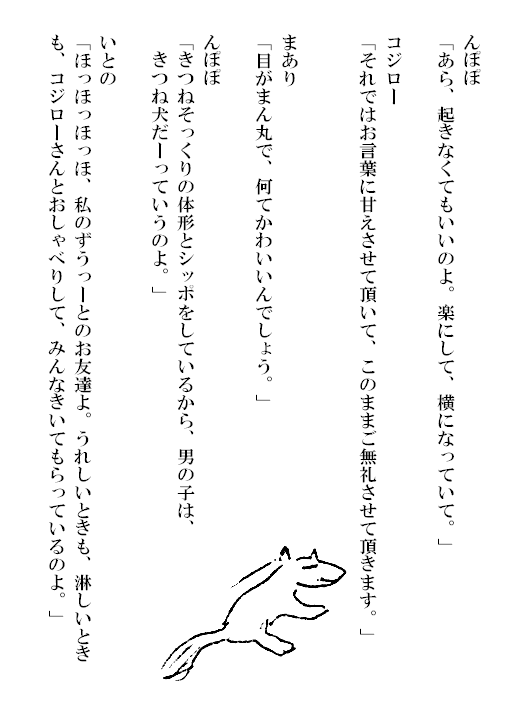 んぽぽ
「あら、起きなくてもいいのよ。楽にして、横になっていて。」
コジロー
「それではお言葉に甘えさせて頂いて、このままご無礼させて頂きます。」
まあり
「目がまん丸で、何てかわいいんでしょう。」
んぽぽ
「きつねそっくりの体形とシッポをしているから、男の子は、
きつね犬だーっていうのよ。」
いとの
「ほっほっほっほ、私のずうっーとのお友達よ。うれしいときも、淋しいとき
も、コジローさんとおしゃべりして、みんなきいてもらっているのよ。」